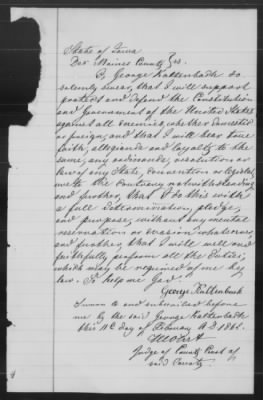 State of Iowa
Des Moines County } ss.
I, George Kattenbach do
solemnly swear, that I will support
protect and defend the Constitution
and Government of the United States
against all enemies, whether domestic
or foreign, and that I will bear true
faith, allegiance and loyalty to the
same, any ordinance, resolution or
law of any State, convention or legislat
ure to the contrary notwithstanding
and further, that I do this with
a full determination, pledge,
and purpose, without any mental
reservation or evasion whatsoever
and further that I will well and
faithfully perform all the Duties,
which may be required of me by
law. So help me God.
George Kattenbach
Sworn to and subscribed before
me by the said George Kattenbach
this 11th day of February A.D 1861.
Judge of County Court of
said County